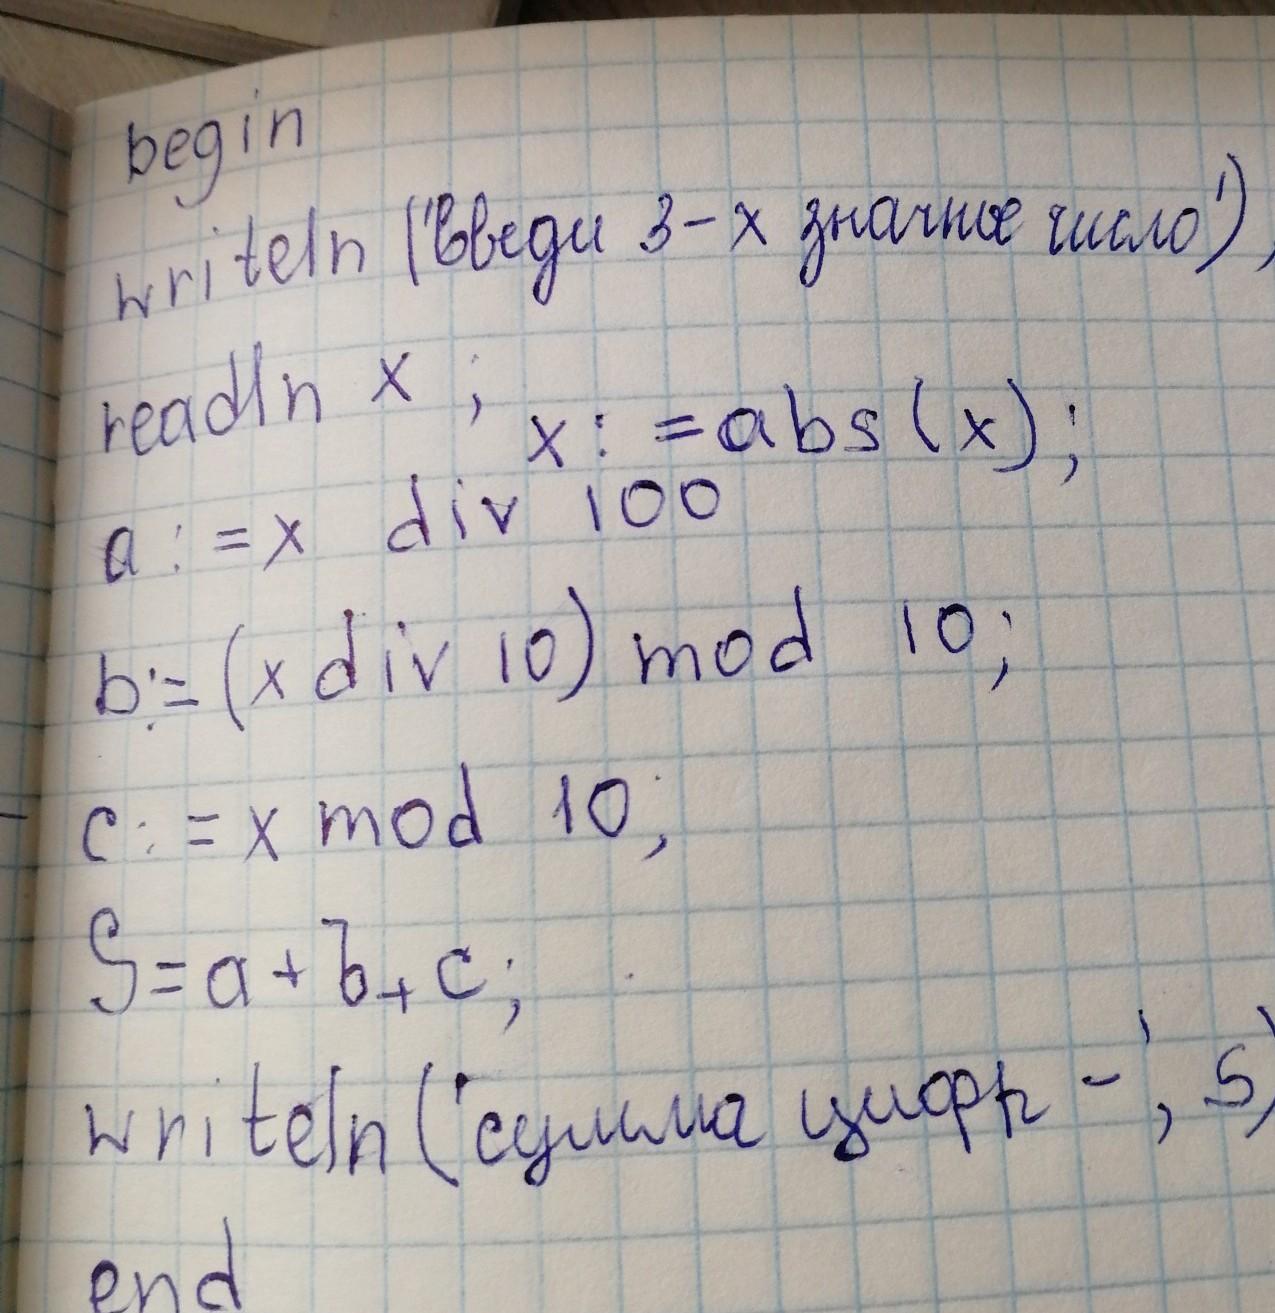 begin
writeln ('Введи 3-х значное число'),
readln x ;
x: =abs(x);
a: =x div 100
b:=(x div 10) mod 10;
c: =x mod 10;
S=a+b+c;
writeln('сумма цифр -', S)
end